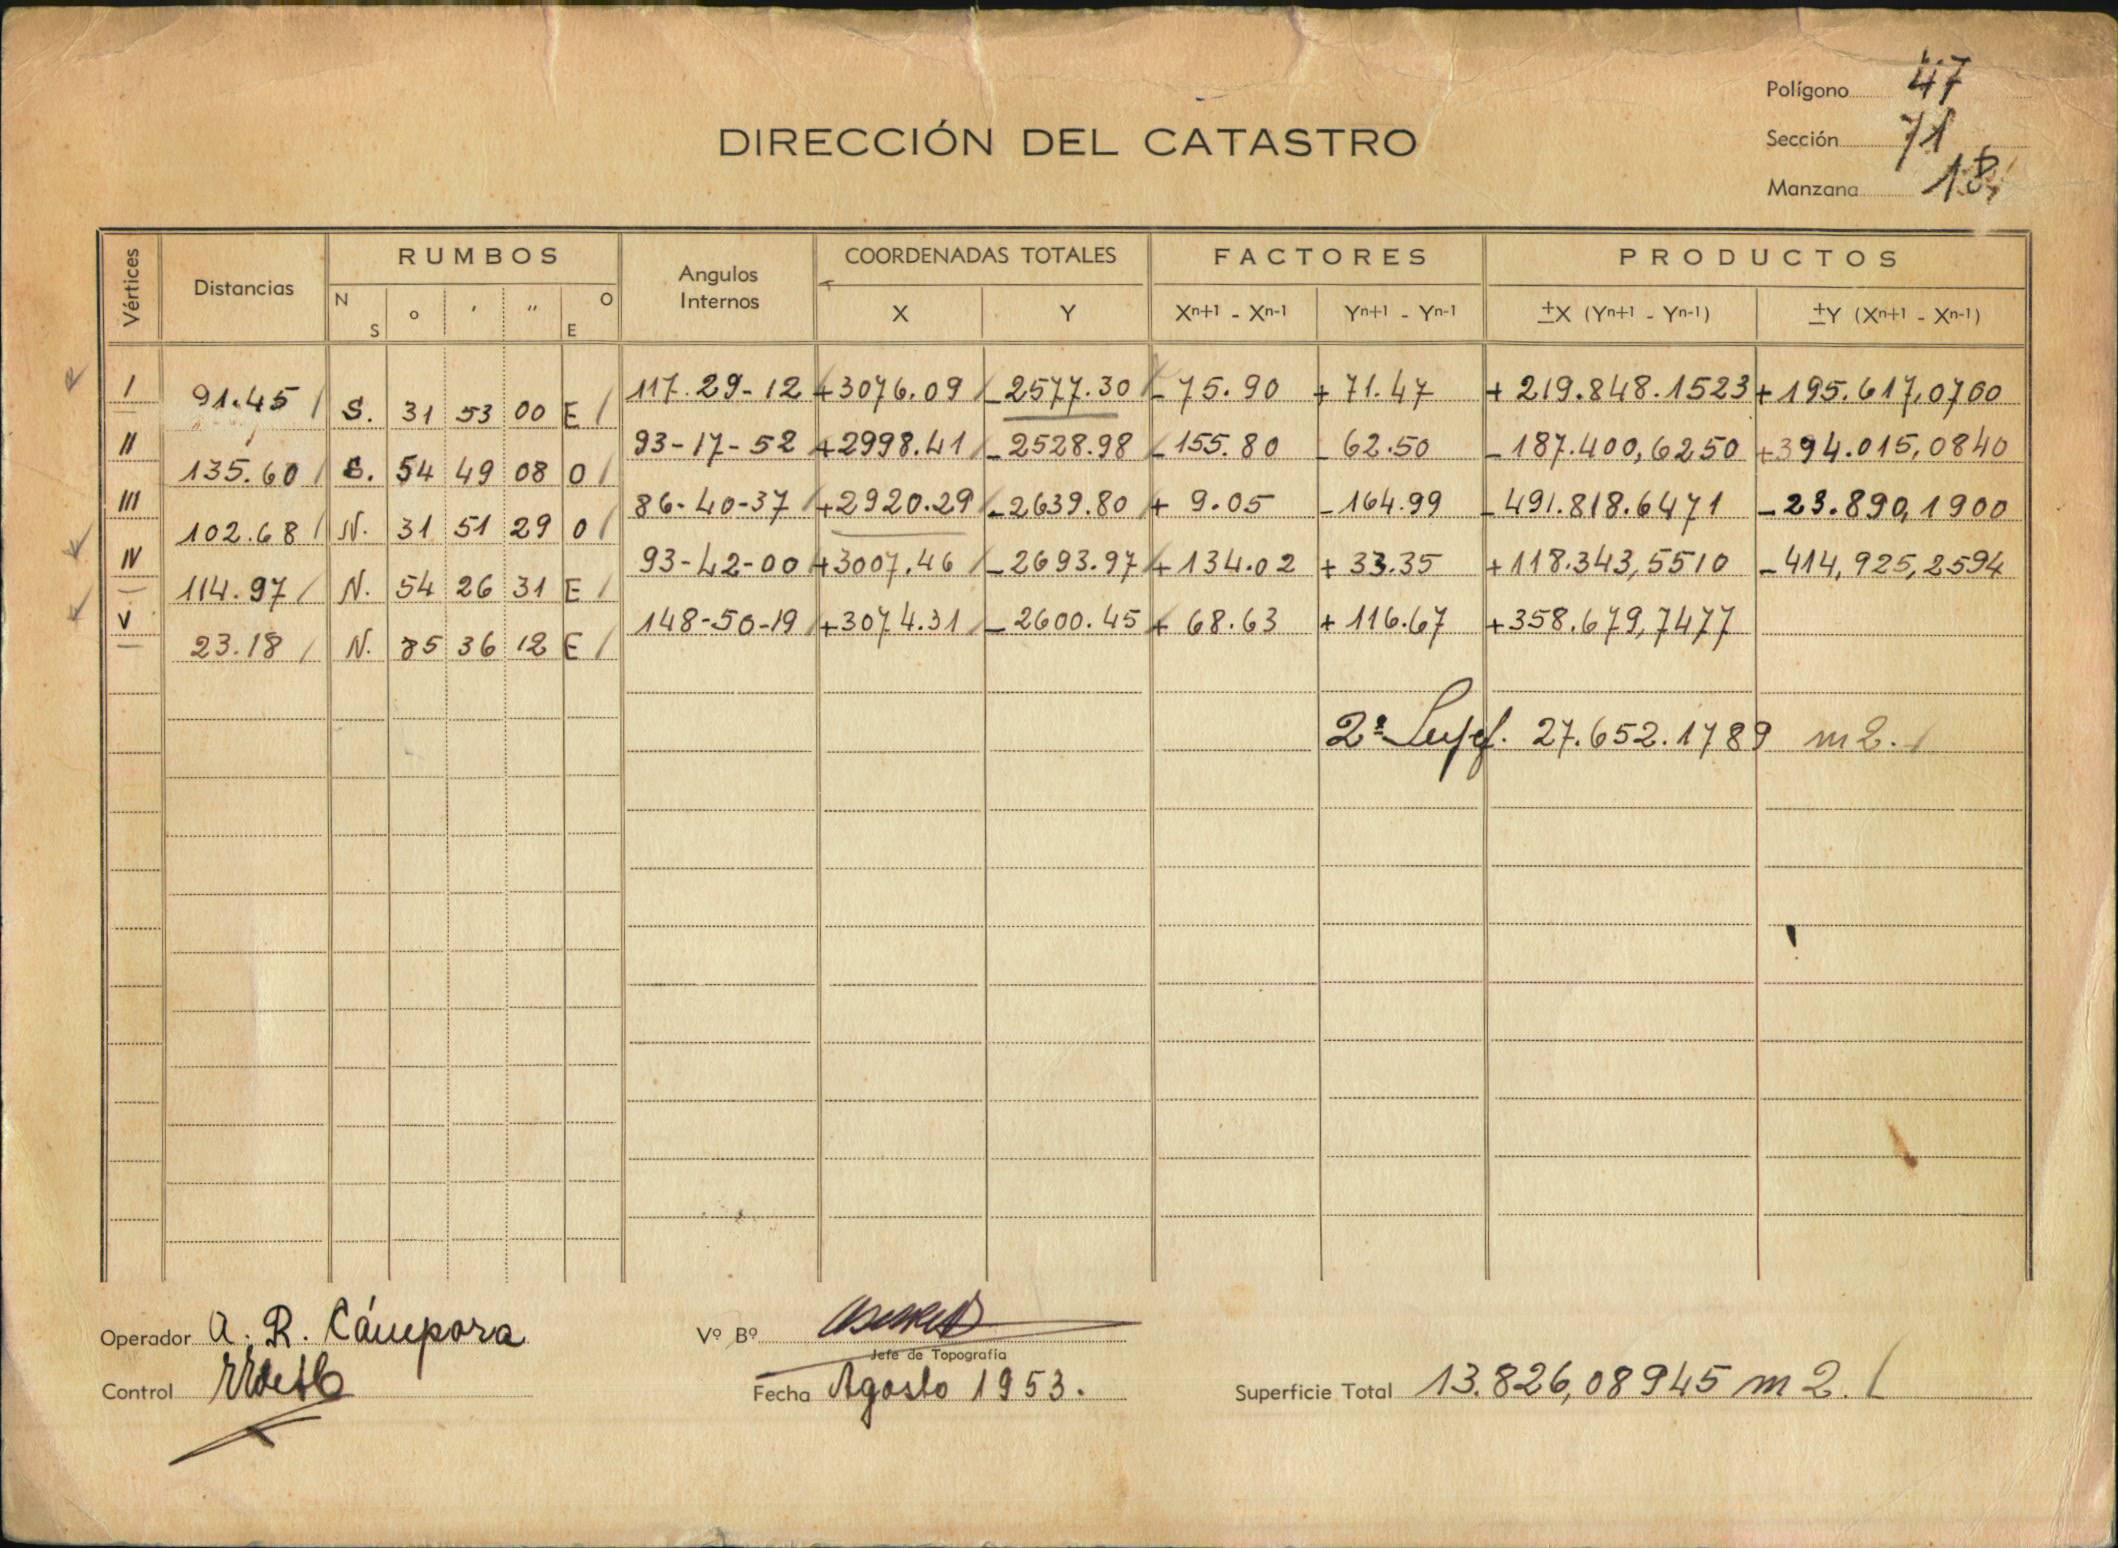 Polígono 47
DIRECCIÓN DEL CATASTRO
Sección 71
Manzana
Vértices Distancias RUMBOS Angulos Internos COORDENADAS TOTALES FACTORES PRODUCTOS
N S o ' " O E X Y Xn+1 - Xn-1 Yn+1 - Yn-1 ±X (Yn+1 - Yn-1) ±Y (Xn+1 - Xn-1)
I 91.45 S. 31 53 00 E 117.29-12 +3076.09 -2577.30 -75.90 +71.47 +219.848.1523 +195.617,0700
II 135.60 S. 54 49 08 O 93-17-52 +2998.41 -2528.98 -155.80 -62.50 -187.400,6250 +394.015,0840
III 102.68 N. 31 51 29 O 86-40-37 +2920.29 -2639.80 + 9.05 -164.99 -491.818.6471 -23.890,1900
IV 114.97 N. 54 26 31 E 93-42-00 +3007.46 -2693.97 +134.02 +33.35 +118.343,5510 -414,925,2594
V 23.18 N. 85 36 12 E 148-50-19 +3074.31 -2600.45 +68.63 +116.67 +358.679,7477
2ª Supf. 27.652.1789 m2.
Operador A. R. Cámpora Vº Bº
Jefe de Topografía
Control Fecha Agosto 1953. Superficie Total 13.826,08945 m2.